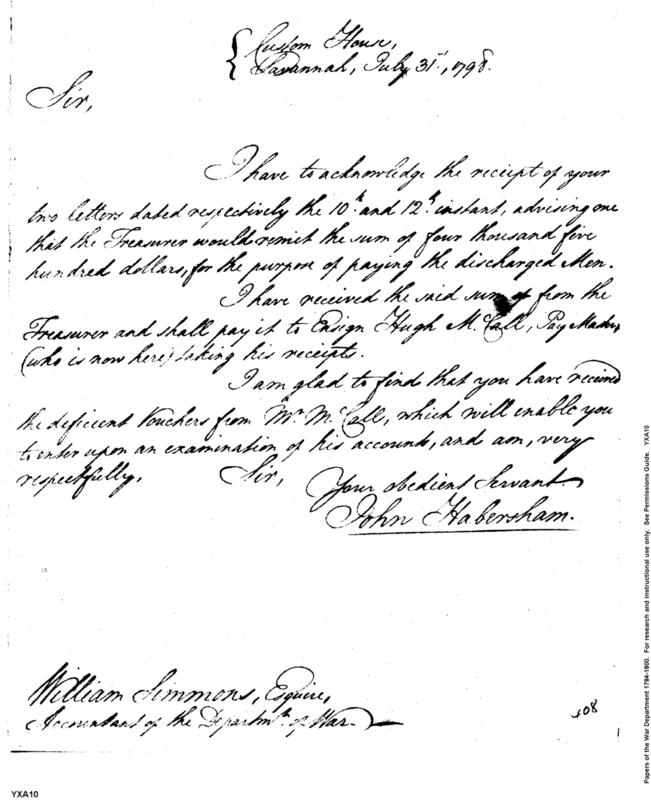 Custom House,
Savannah, July 31st, 1798.
Sir,
I have to acknowledge the receipt of your
two letters dated respectively the 10th and 12th instant, advising me
that the Treasurer would remit the sum of four thousand five
hundred dollars, for the purpose of paying the discharged Men.
I have received the said sum from the
Treasurer and shall pay it to Ensign Hugh McCall, Pay Master
(who is now here) taking his receipts.
I am glad to find that you have received
the deficient Vouchers from Mr McCall, which will enable you
to enter upon an examination of his accounts, and am, very
respectfully, Sir,
Your obedient Servant
John Habersham.
William Simmons, Esquire,
Accountant of the Departmt of War.
408
YXA10
Papers of the War Department 1784-1800. For research and instructional use only. See Permissions Guide. YXA10